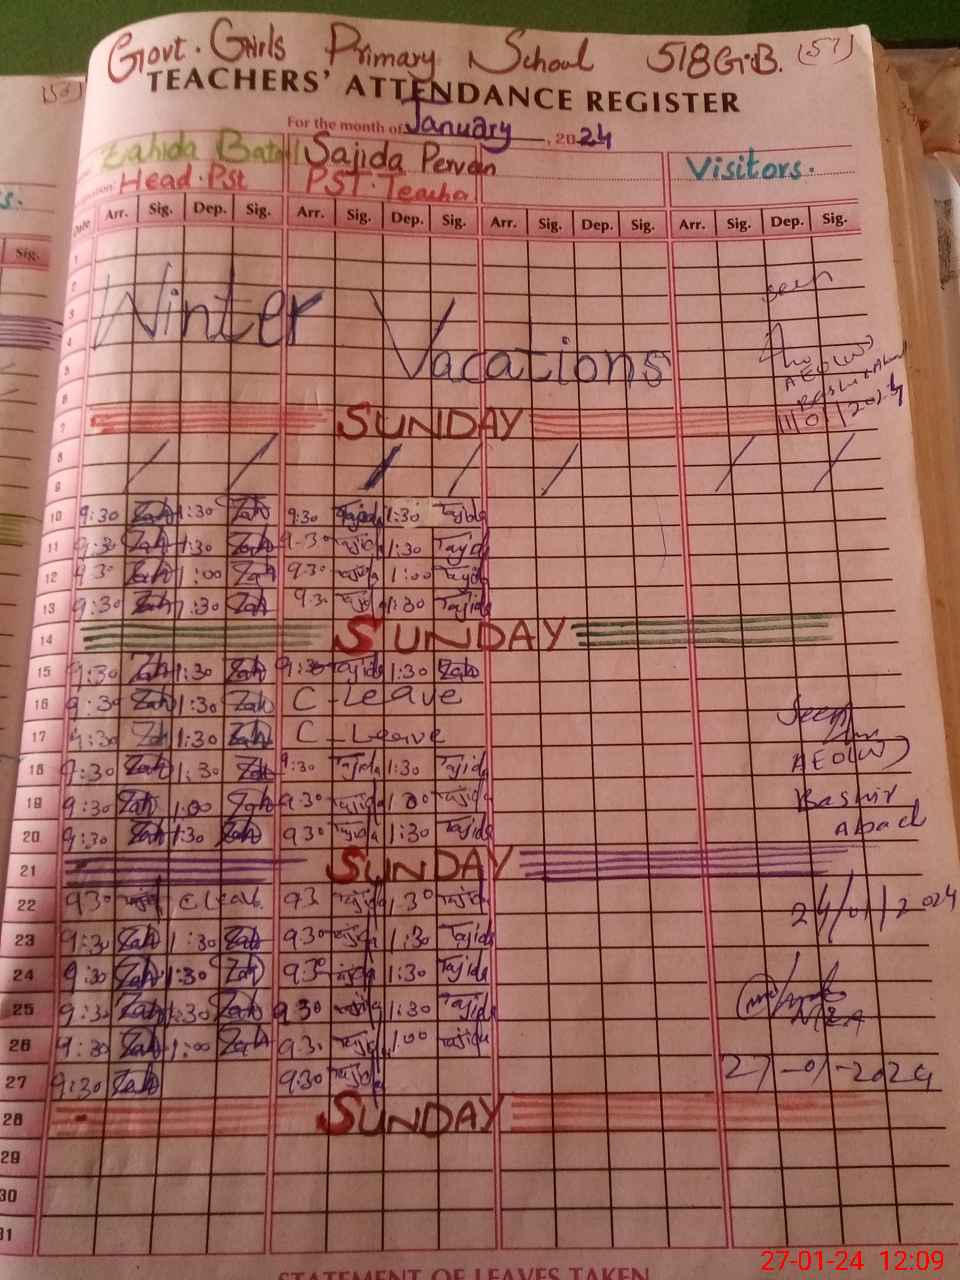 Govt. Girls Primary School 518 G.B. (57)
TEACHERS' ATTENDANCE REGISTER
For the month of January, 2024
Zahida Batol Sajida Pervan Visitors.
Head.Pst PST.Teacha
Date Arr. Sig. Dep. Sig. Arr. Sig. Dep. Sig. Arr. Sig. Dep. Sig. Arr. Sig. Dep. Sig.
1
2 seen
3 Winter
4 Vacations
5 AEO(W)
6
7 SUNDAY 11/01/2024
8
9
10 9:30 Zah 1:30 Zah 9:30 Tajida 1:30 Tajida
11 9:30 Zah 1:30 Zah 9:30 Tajida 1:30 Tajida
12 9:30 Zah 1:00 Zah 9:30 Tajida 1:00 Tajida
13 9:30 Zah 1:30 Zah 9:30 Tajida 1:30 Tajida
14 SUNDAY
15 9:30 Zah 1:30 Zah 9:30 Tajida 1:30 Zah
16 9:30 Zah 1:30 Zah C-Leave Seen
17 9:30 Zah 1:30 Zah C-Leave
18 9:30 Zah 1:30 Zah 9:30 Tajida 1:30 Tajida AEO(W)
19 9:30 Zah 1:00 Zah 9:30 Tajida 1:00 Tajida Bashir
20 9:30 Zah 1:30 Zah 9:30 Tajida 1:30 Tajida Abad
21 SUNDAY
22 930 C Leave 93 Tajida 1:30 Tajida 24/01/2024
23 9:30 Zah 1:30 Zah 930 Tajida 1:30 Tajida
24 9:30 Zah 1:30 Zah 930 Tajida 1:30 Tajida
25 9:30 Zah 1:30 Zah 930 Tajida 1:30 Tajida MEA
26 9:30 Zah 1:00 Zah 93. Tajida 1:00 Tajida
27 9:30 Zah 9:30 Tajida 27-01-2024
28 SUNDAY
29
30
31
STATEMENT OF LEAVES TAKEN
27-01-24 12:09